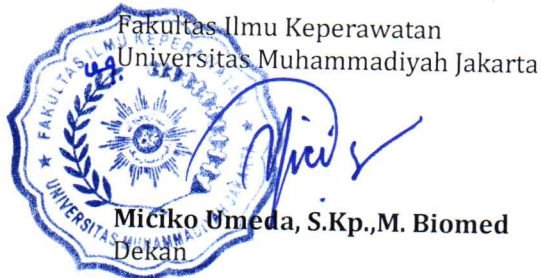 Fakultas Ilmu Keperawatan
Universitas Muhammadiyah Jakarta
FAKULTAS ILMU KEPERAWATAN
UNIVERSITAS MUHAMMADIYAH JAKARTA
Miciko Umeda, S.Kp.,M. Biomed
Dekan